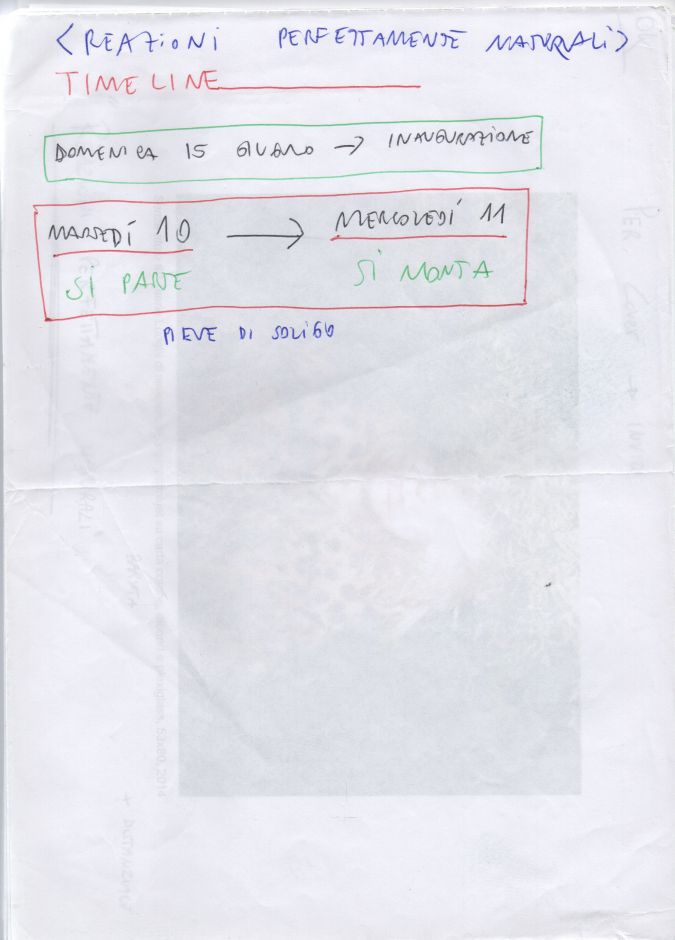 <REAZIONI PERFETTAMENTE NATURALI>
TIMELINE
DOMENICA 15 GIUGNO → INAUGURAZIONE
MARTEDÍ 10 → MERCOLEDÍ 11
SI PARTE SI MONTA
PIEVE DI SOLIGO